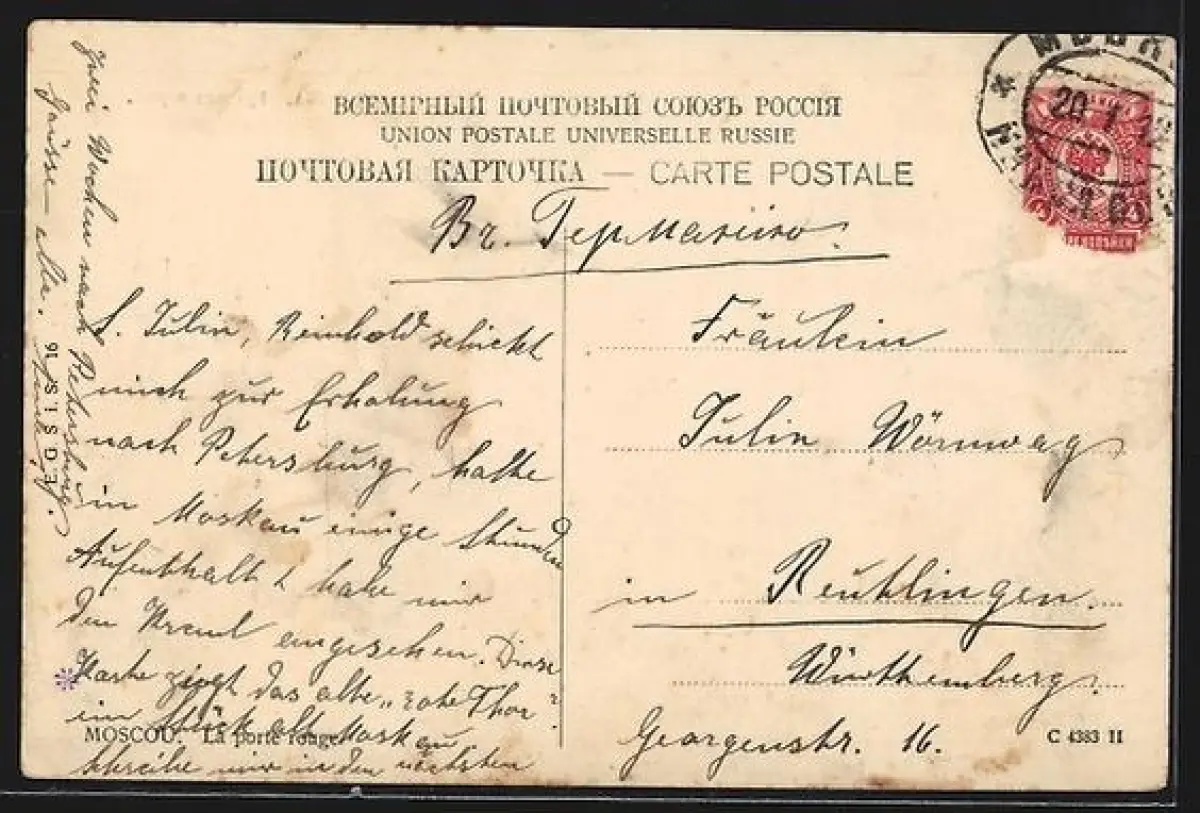 ВСЕМІРНЫЙ ПОЧТОВЫЙ СОЮЗЪ РОССІЯ
UNION POSTALE UNIVERSELLE RUSSIE
ПОЧТОВАЯ КАРТОЧКА — CARTE POSTALE
Въ Германію.
Fräulein
Julie Wörnwag
in Reutlingen.
Württemberg.
Georgenstr. 16.
L. Julie, Reinhold schickt
mich zur Erholung
nach Petersburg, hatte
in Moskau einige Stunden
Aufenthalt & habe mir
den Kreml angesehen. Diese
Karte zeigt das alte „rote Thor"
ein Stück alt Moskau
Schreibe mir in den nächsten
zwei Wochen nach Petersburg.
Grüsse
MOSCOU. La porte rouge.
C 4383 II
МОСК
20